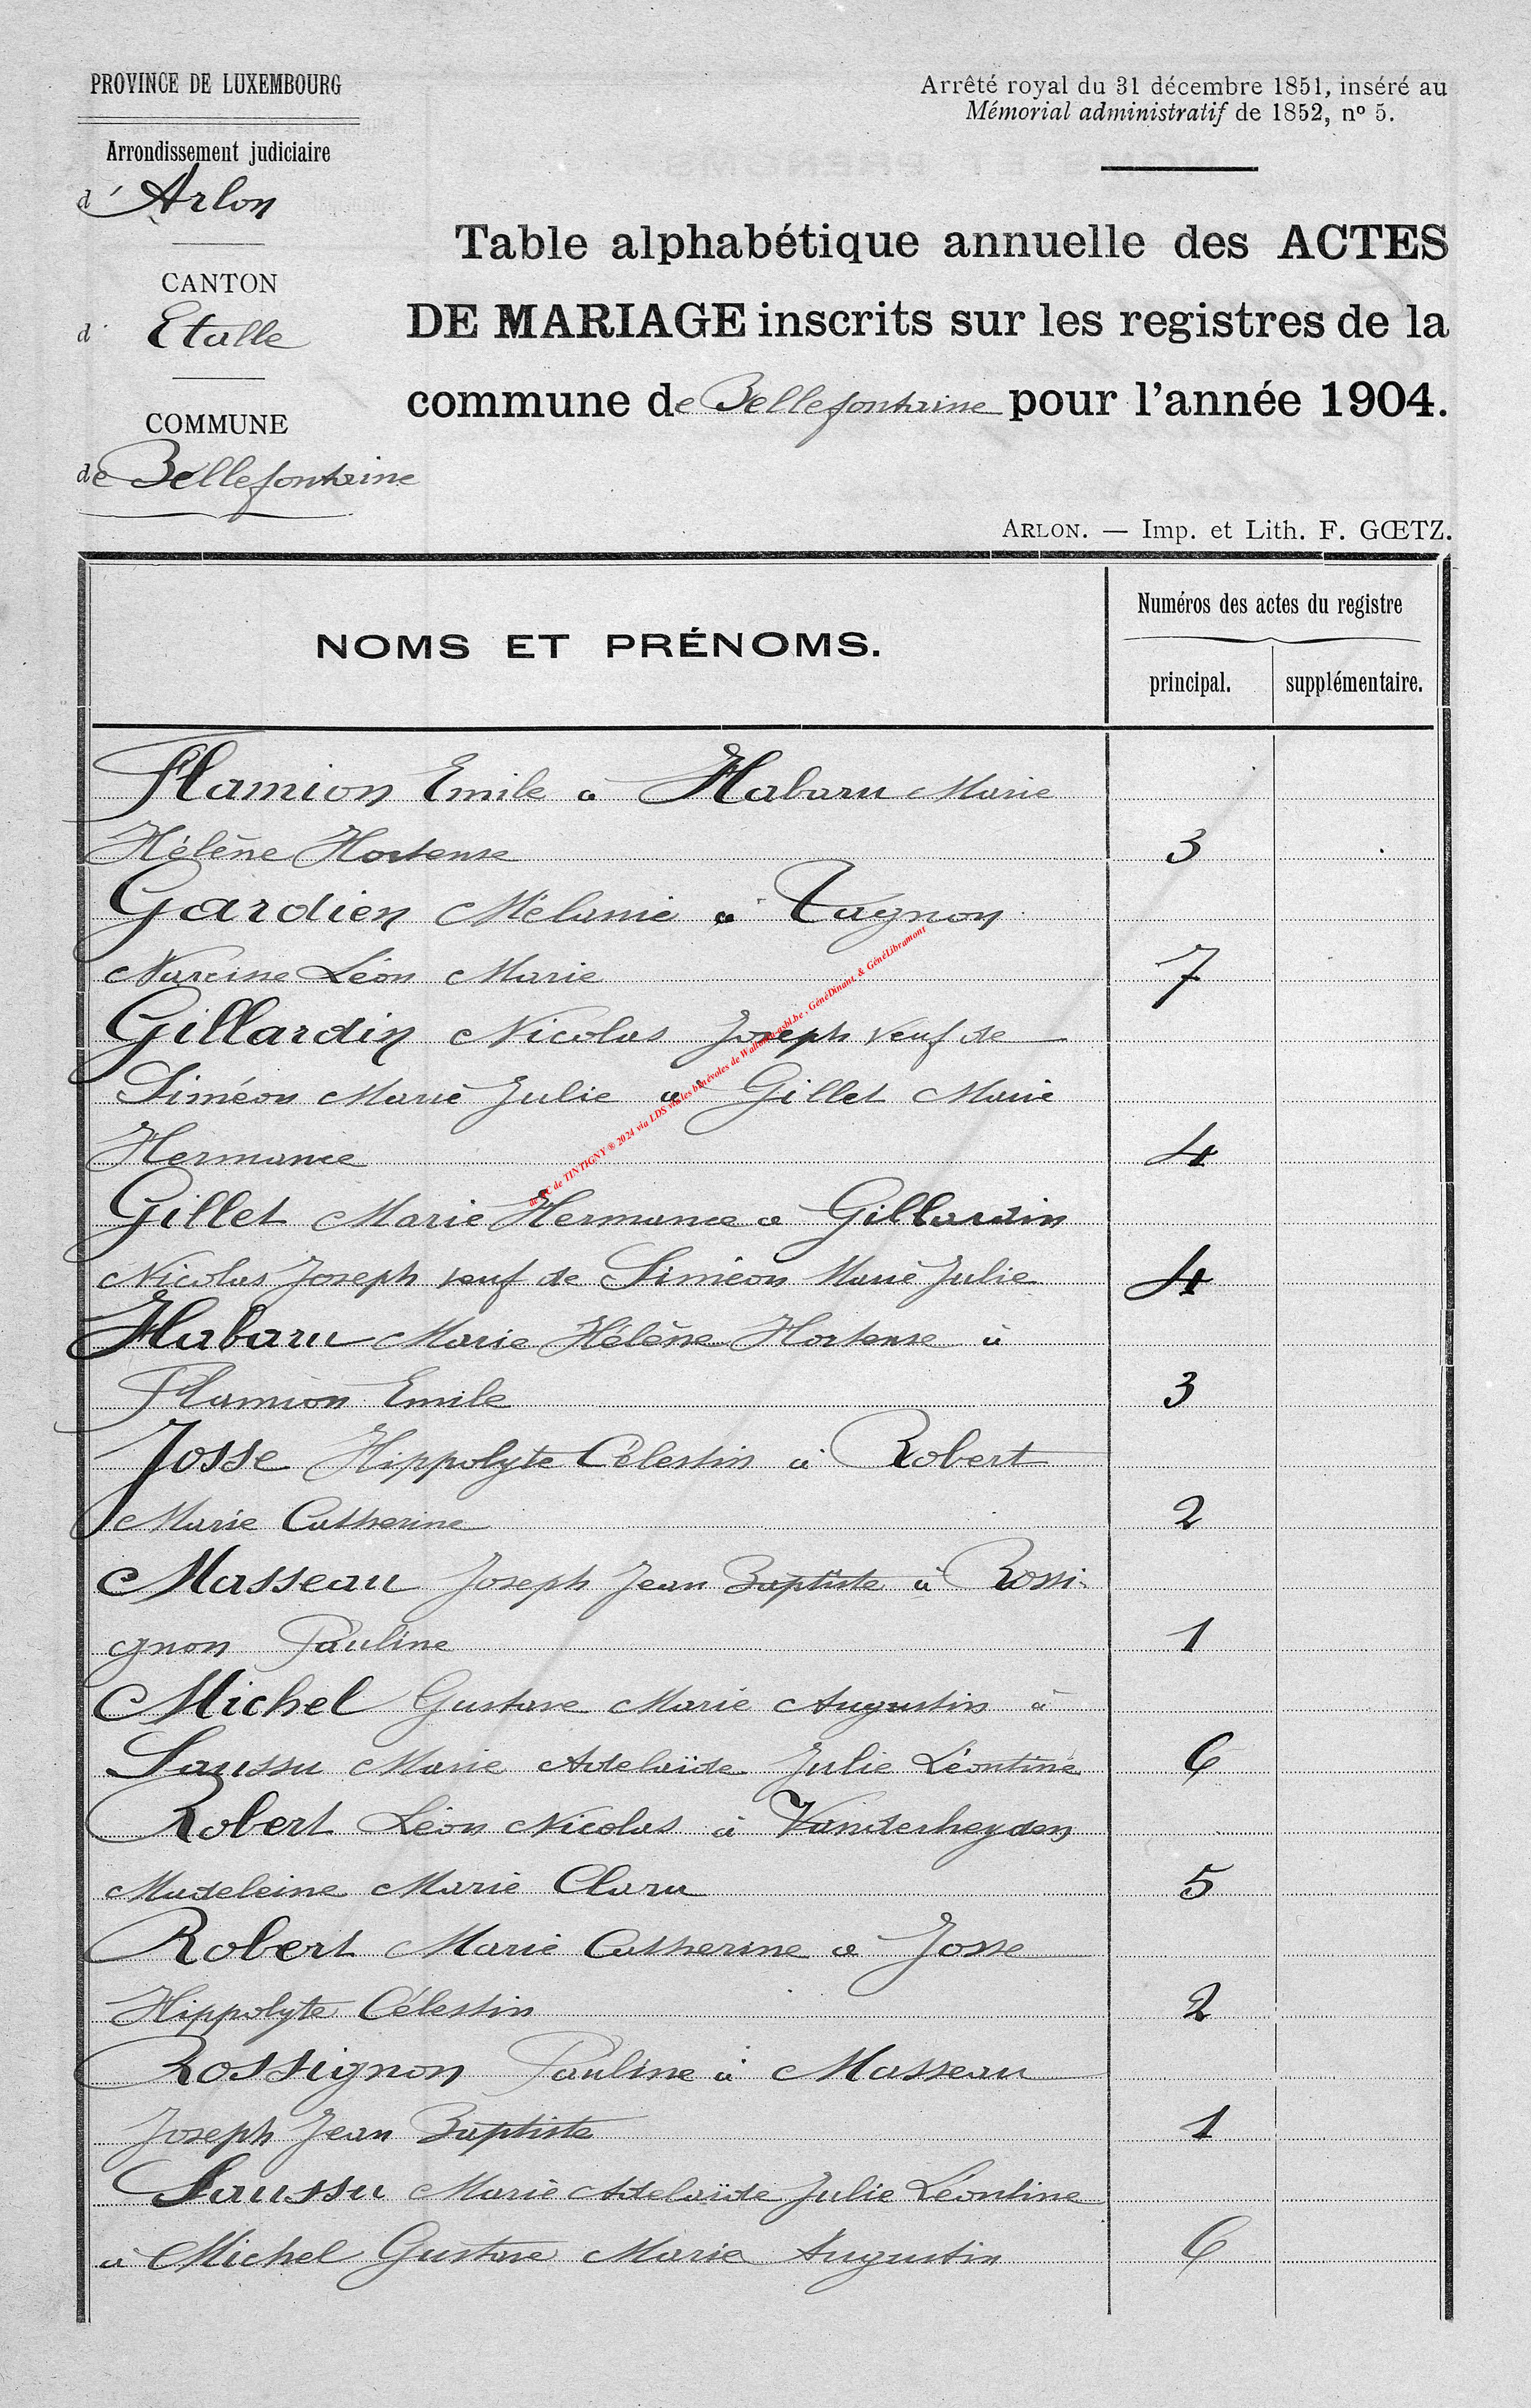 PROVINCE DE LUXEMBOURG
Arrondissement judiciaire
d'Arlon
CANTON
d'Etalle
COMMUNE
de Bellefontaine
Arrêté royal du 31 décembre 1851, inséré au
Mémorial administratif de 1852, nº 5.
Table alphabétique annuelle des ACTES
DE MARIAGE inscrits sur les registres de la
commune de Bellefontaine pour l'année 1904.
ARLON. — Imp. et Lith. F. GŒTZ.
NOMS ET PRÉNOMS.
Numéros des actes du registre
principal. supplémentaire.
Flamion Emile à Habaru Marie
Hélène Hortense 3
Gardien Mélanie à Tagnon
Narcisse Léon Marie 7
Gillardin Nicolas Joseph veuf de
Siméon Marie Julie à Gillet Marie
Hermance 4
Gillet Marie Hermance à Gillardin
Nicolas Joseph veuf de Siméon Marie Julie 4
Habaru Marie Hélène Hortense à
Flamion Emile 3
Josse Hippolyte Célestin à Robert
Marie Catherine 2
Masseau Joseph Jean Baptiste à Rossi-
gnon Pauline 1
Michel Gustave Marie Augustin à
Saussu Marie Adelaïde Julie Léontine 6
Robert Léon Nicolas à Vanderheyden
Madeleine Marie Clara 5
Robert Marie Catherine à Josse
Hippolyte Célestin 2
Rossignon Pauline à Masseau
Joseph Jean Baptiste 1
Saussu Marie Adelaïde Julie Léontine
à Michel Gustave Marie Augustin 6
de TINTIGNY ® 2024 via LDS via les bénévoles de GénéDinant & GénéLibramont